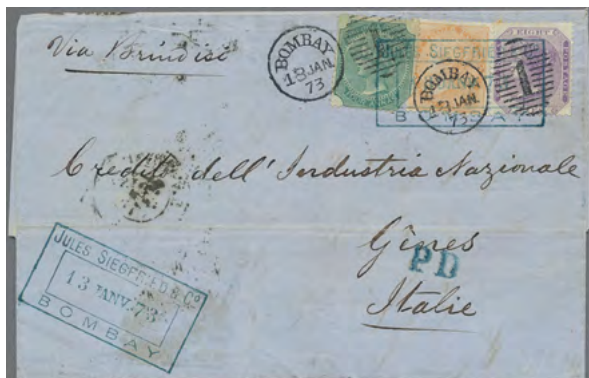 Via Brindisi
BOMBAY
13 JAN
73
1
JULES SIEGFRIED
BOMBAY
BOMBAY
13 JAN
73
EIGHT
1
Credito dell'Industria Nazionale
Gênes
PD
Italie
JULES SIEGFRIED & Cº
13 JANV. 73
BOMBAY